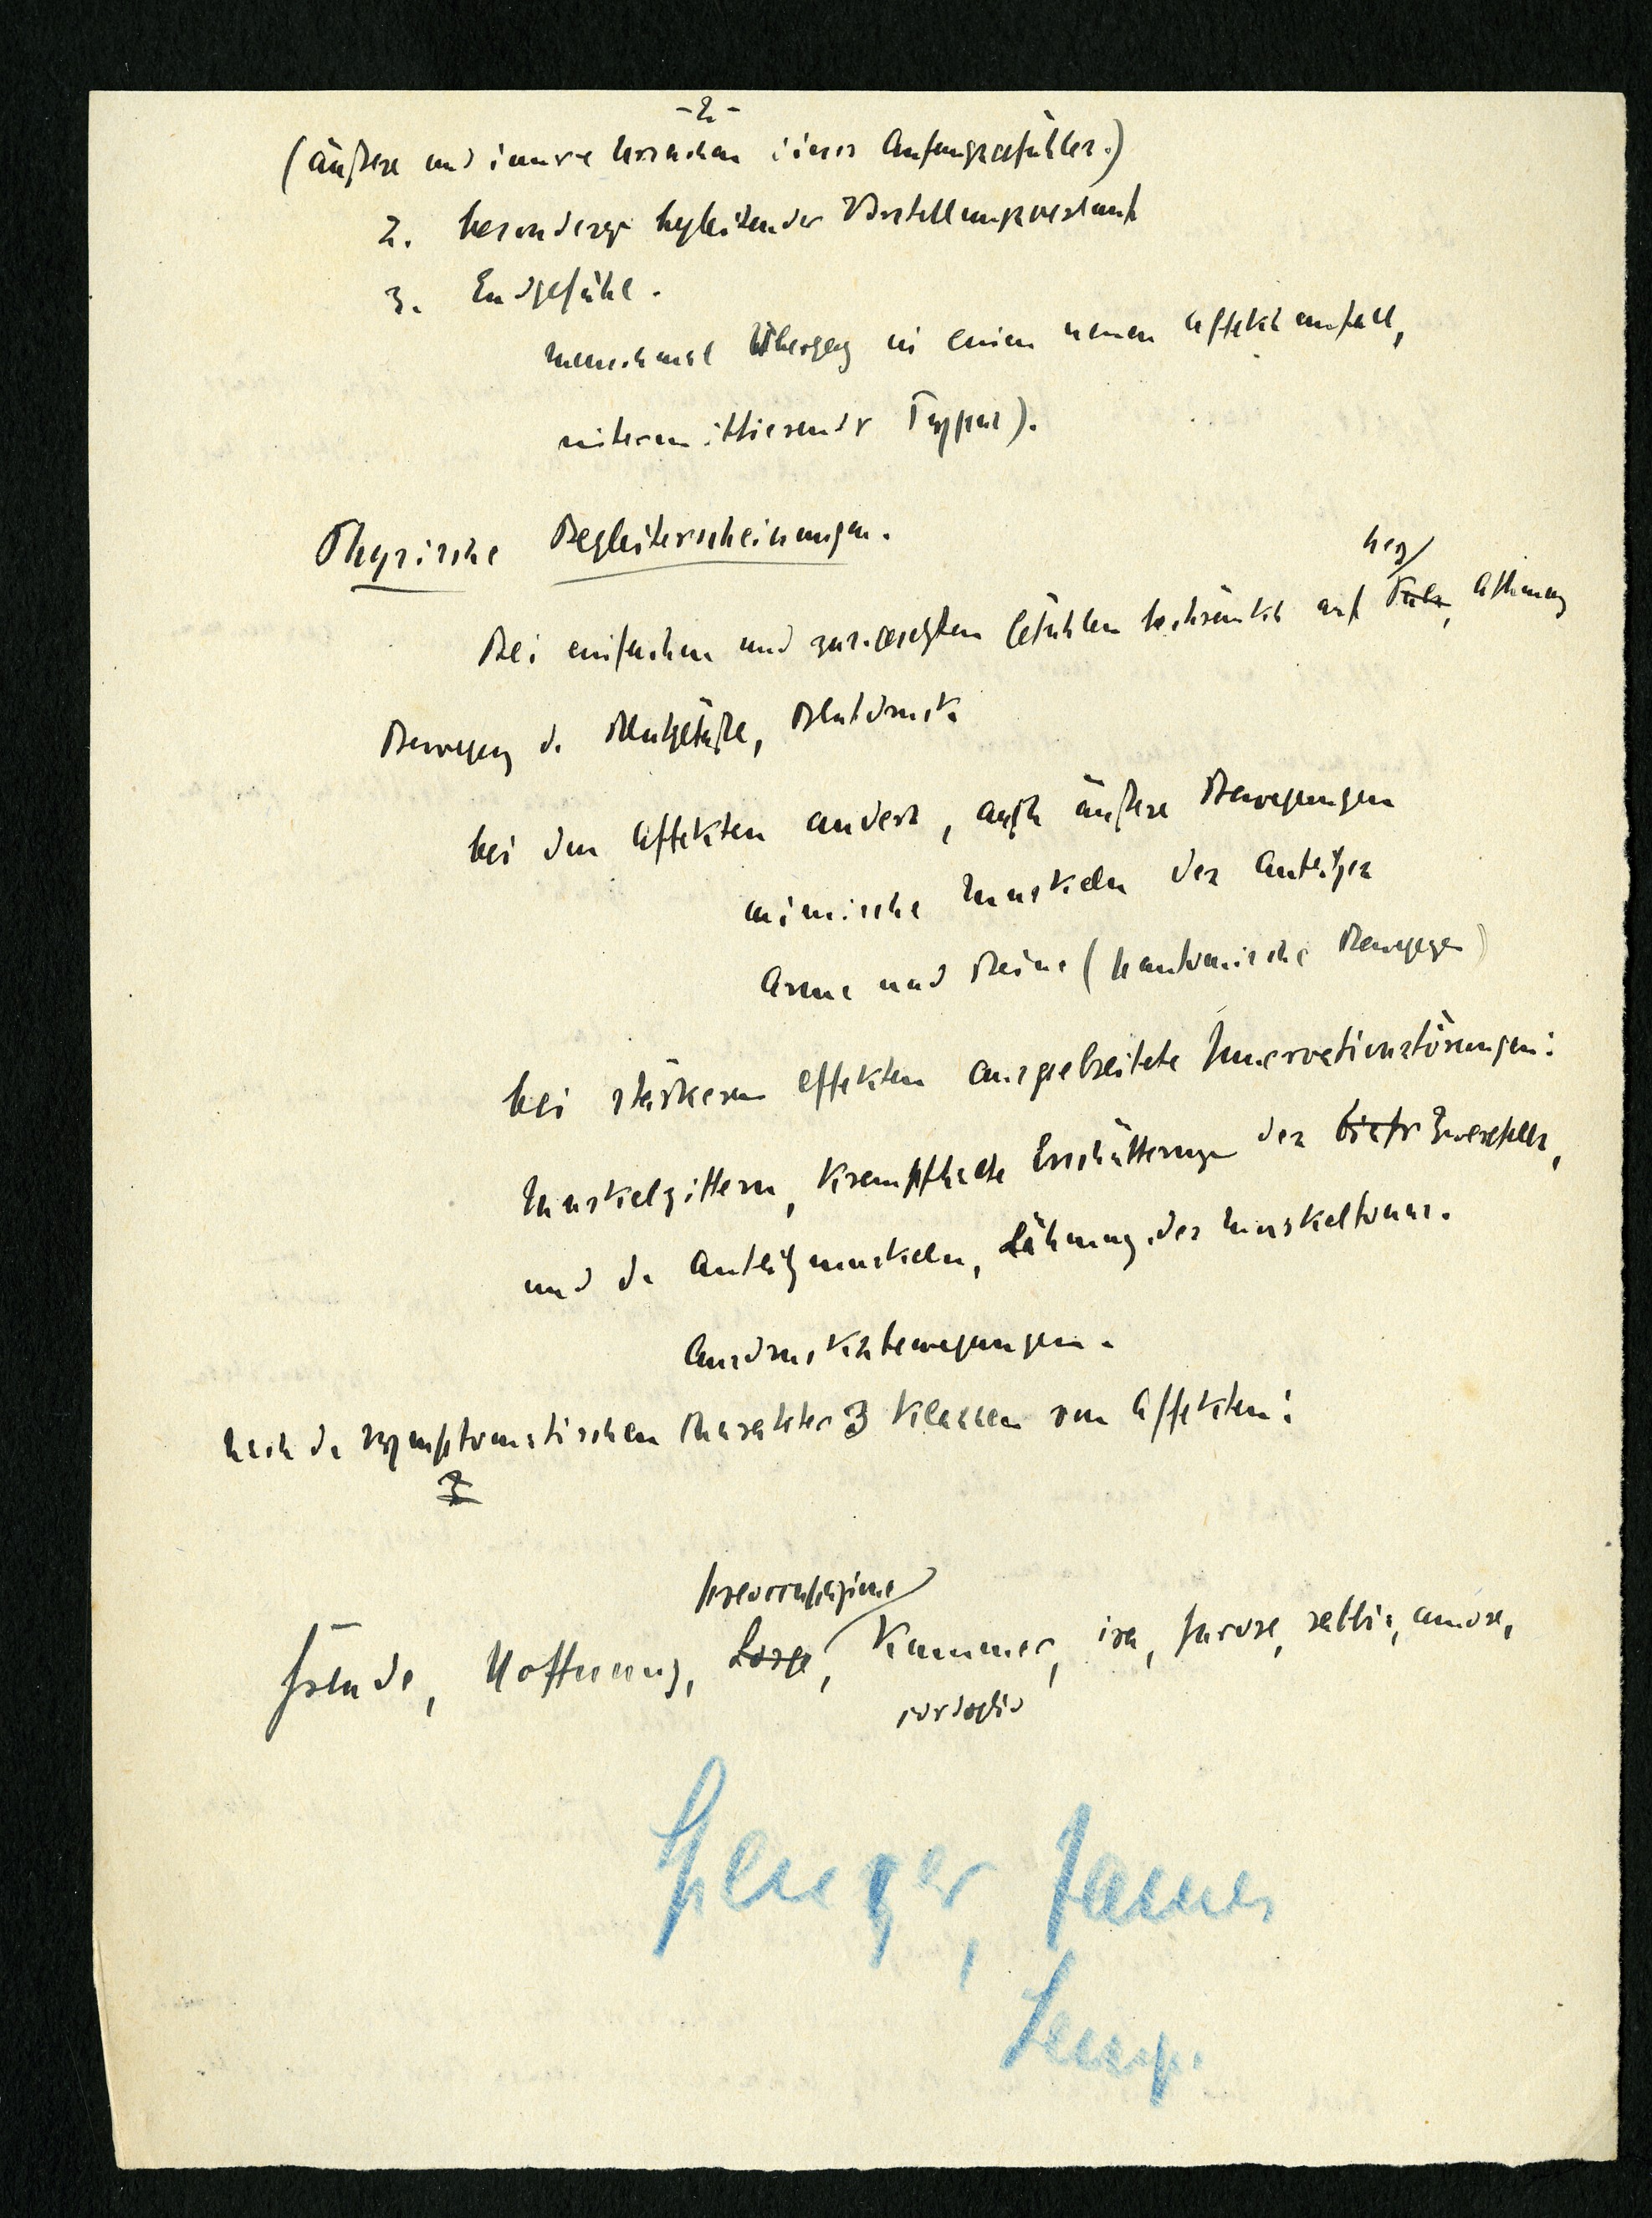 -2-
(äußere und innere Ursachen eines Anfangsgefühles.)
2. besonderer begleitender Vorstellungsverlauf
3. Endgefühl.
manchmal Übergang in einen neuen Affektanfall,
intermittierender Typus).
Physische Begleiterscheinungen.
Herz
Bei einfachen und zusgesetzten Gefühlen beschränkt auf Puls, Athmung
Bewegung d. Blutgefäße, Blutdruck
bei den Affekten anders, auch äußere Bewegungen
mimische Muskeln des Antlitzes
Arme und Beine (pantomische Bewegungen)
bei stärkeren Affekten ausgebreitete Innervationstörungen:
Muskelzittern, krampfhafte Erschütterungen des Zwerchfells,
und d. Antlitzmuskeln, Lähmung des Muskeltonus.
Ausdrucksbewegungen.
Nach d. symptomatischen Charakter 3 Klassen von Affekten:
preoccupazione
Freude, Hoffnung, Sorge, Kummer, ira, furore, rabbia, amore,
cordoglio
James